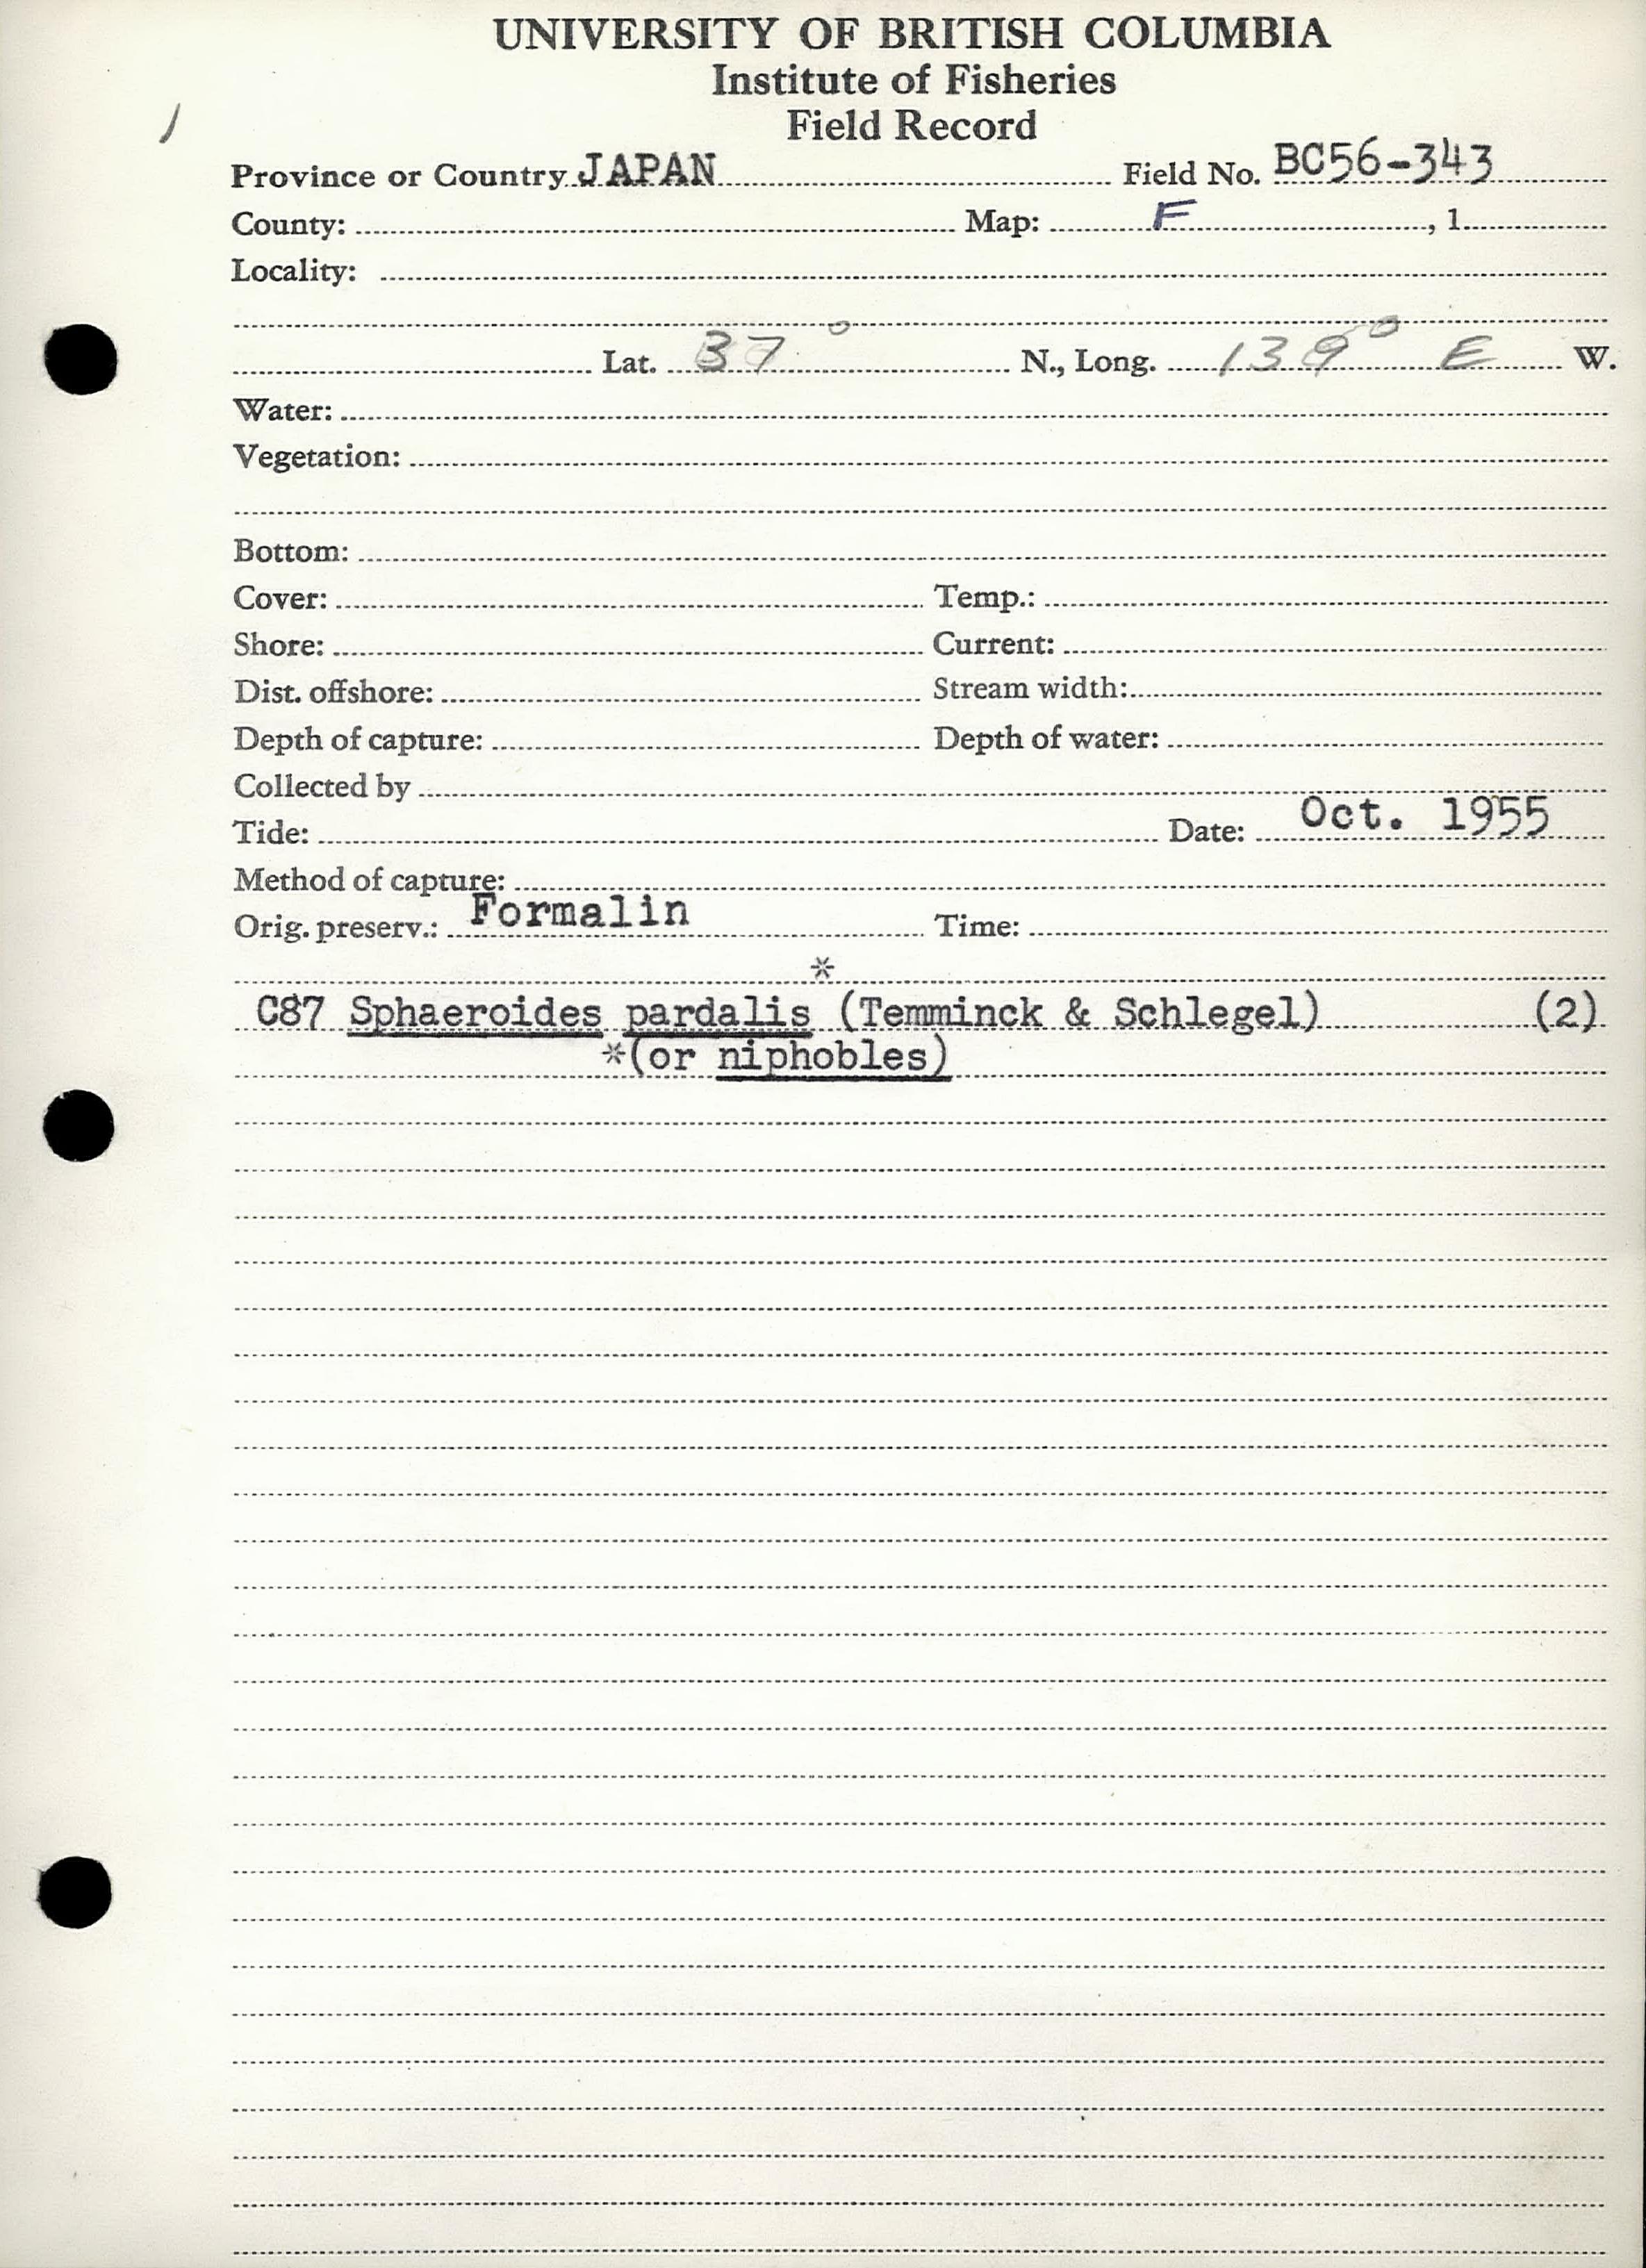 UNIVERSITY OF BRITISH COLUMBIA
Institute of Fisheries
Field Record
/
Province or Country JAPAN Field No. BC56-343
County: Map: F , 1
Locality:
Lat. 37° N., Long. 139° E W.
Water:
Vegetation:
Bottom:
Cover: Temp.:
Shore: Current:
Dist. offshore: Stream width:
Depth of capture: Depth of water:
Collected by
Tide: Date: Oct. 1955
Method of capture:
Orig. preserv.: Formalin Time:
*
C87 Sphaeroides pardalis (Temminck & Schlegel) (2)
*(or niphobles)